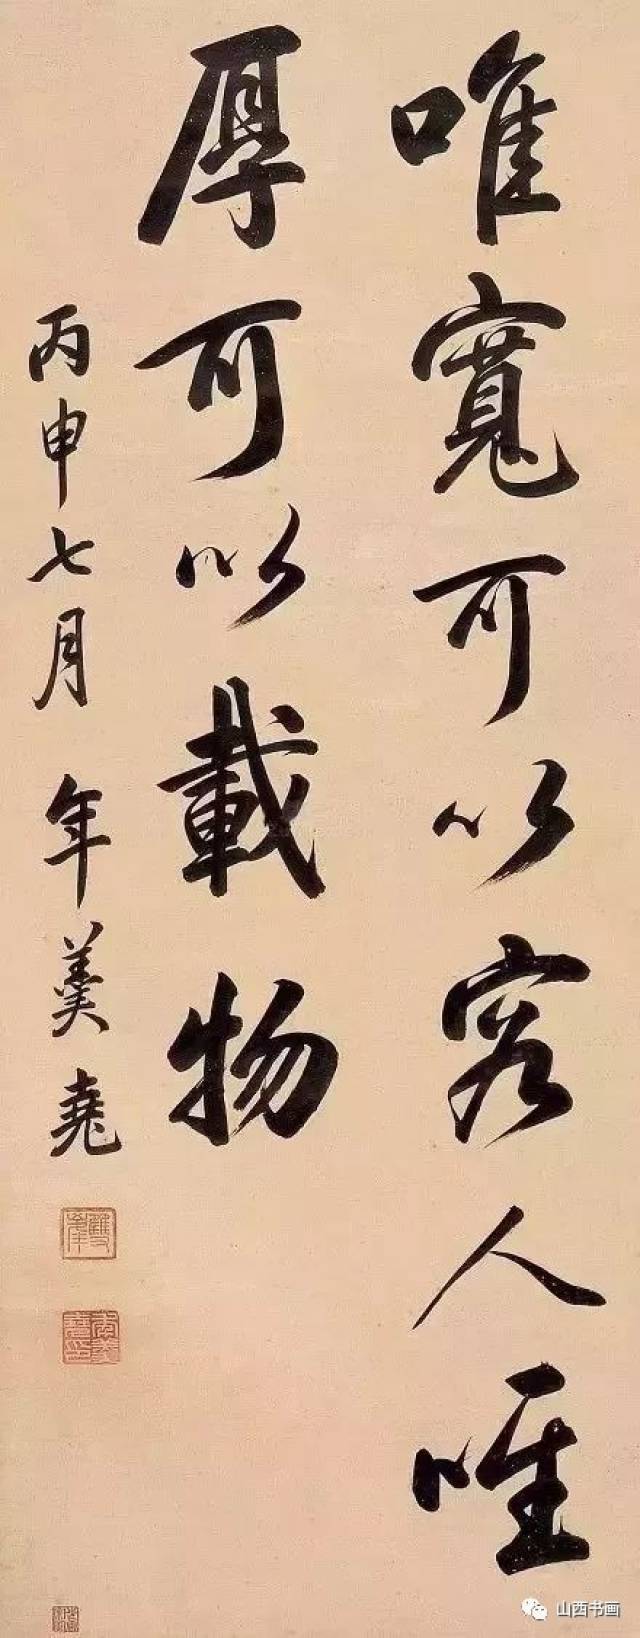 唯寬可以容人唯
厚可以載物
丙申七月 年羹堯
山西书画